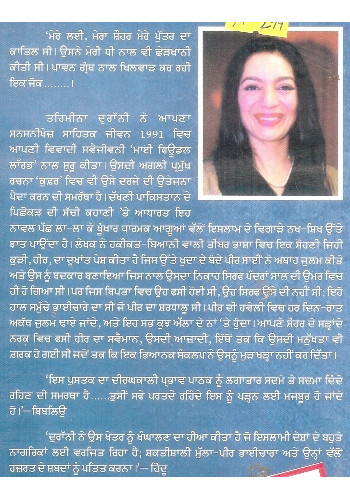 'ਮੇਰੇ ਲਈ, ਮੇਰਾ ਸ਼ੌਹਰ ਮੇਰੇ ਪੁੱਤਰ ਦਾ
ਕਾਤਿਲ ਸੀ। ਉਸਨੇ ਮੇਰੀ ਧੀ ਨਾਲ ਵੀ ਛੇੜਖਾਨੀ
ਕੀਤੀ ਸੀ। ਪਾਵਨ ਗ੍ਰੰਥ ਨਾਲ ਖਿਲਵਾੜ ਕਰ ਰਹੀ
ਇਕ ਜੋਕ........।
ਤਹਿਮੀਨਾ ਦੁਰਾਨੀ ਨੇ ਆਪਣਾ
ਸਨਸਨੀਖੇਜ਼ ਸਾਹਿਤਕ ਜੀਵਨ 1991 ਵਿਚ
ਆਪਣੀ ਵਿਵਾਦੀ ਸਵੈਜੀਵਨੀ 'ਮਾਈ ਫਿਊਡਲ
ਲਾੱਰਡ' ਨਾਲ ਸ਼ੁਰੂ ਕੀਤਾ। ਉਸਦੀ ਅਗਲੀ ਪ੍ਰਮੁੱਖ
ਰਚਨਾ 'ਕੁਫ਼ਰ' ਵਿਚ ਵੀ ਉਸੇ ਦਰਜੇ ਦੀ ਉਤੇਜਨਾ
ਪੈਦਾ ਕਰਨ ਦੀ ਸਮਰੱਥਾ ਹੈ। ਦੱਖਣੀ ਪਾਕਿਸਤਾਨ ਦੇ
ਪਿਛੋਕੜ ਦੀ ਸੱਚੀ ਕਹਾਣੀ 'ਤੇ ਆਧਾਰਤ ਇਹ
ਨਾਵਲ ਪੱਛ ਲਾ-ਲਾ ਕੇ ਖ਼ੂੰਖਾਰ ਧਾਰਮਕ ਆਗੂਆਂ ਵੱਲੋਂ ਇਸਲਾਮ ਦੇ ਵਿਗਾੜੇ ਨਖ-ਸ਼ਿਖ ਉੱਤੇ
ਝਾਤ ਪਾਉਂਦਾ ਹੈ। ਲੇਖਕ ਨੇ ਹਕੀਕਤ-ਬਿਆਨੀ ਵਾਲੀ ਤੀਬਰ ਭਾਸ਼ਾ ਵਿਚ ਇਕ ਸੋਹਣੀ ਜਿਹੀ
ਕੁੜੀ, ਹੀਰ, ਦਾ ਦੁਖਾਂਤ ਪੇਸ਼ ਕੀਤਾ ਹੈ ਜਿਸ ਉੱਤੇ ਖ਼ੁਦਾ ਦੇ ਬੰਦੇ ਪੀਰ ਸਾਈਂ ਨੇ ਅਥਾਹ ਜ਼ੁਲਮ ਕੀਤੇ
ਅਤੇ ਉਸ ਨੂੰ ਬਦਕਾਰ ਬਣਾਇਆ ਜਿਸ ਨਾਲ ਉਸਦਾ ਨਿਕਾਹ ਸਿਰਫ ਪੰਦਰਾਂ ਸਾਲ ਦੀ ਉਮਰ ਵਿਚ
ਹੀ ਹੋ ਗਿਆ ਸੀ। ਪਰ ਜਿਸ ਬਿਪਤਾ ਵਿਚ ਉਹ ਫਸੀ ਹੋਈ ਸੀ, ਉਹ ਸਿਰਫ ਉਸੇ ਦੀ ਨਹੀਂ ਸੀ; ਇਹੋ
ਹਾਲ ਸਮੁੱਚੇ ਭਾਈਚਾਰੇ ਦਾ ਸੀ ਜੋ ਪੀਰ ਦਾ ਸ਼ਰਧਾਲੂ ਸੀ। ਪੀਰ ਦੀ ਹਵੇਲੀ ਵਿਚ ਹਰ ਦਿਨ-ਰਾਤ
ਅਕੱਥ ਜ਼ੁਲਮ ਢਾਏ ਜਾਂਦੇ, ਅਤੇ ਇਹ ਸਭ ਕੁਝ ਅੱਲਾ ਦੇ ਨਾਂ 'ਤੇ ਹੁੰਦਾ। ਆਪਣੇ ਸ਼ੌਹਰ ਦੇ ਸੜ੍ਹਾਂਦੇ
ਨਰਕ ਵਿਚ ਫਸੀ ਹੀਰ ਦਾ ਸਵੈਮਾਨ, ਉਸਦੀ ਆਜ਼ਾਦੀ, ਇੱਥੋਂ ਤਕ ਕਿ ਉਸਦੀ ਮਨੁੱਖਤਾ ਵੀ
ਗ਼ਰਕ ਹੋ ਗਈ ਸੀ ਜਦੋਂ ਤਕ ਕਿ ਇਕ ਭਿਆਨਕ ਸੰਕਲਪ ਨੇ ਉਸਨੂੰ ਮੁੜ ਖੜ੍ਹਾ ਨਹੀਂ ਕਰ ਦਿੱਤਾ।
'ਇਸ ਪੁਸਤਕ ਦਾ ਦੀਰਘਕਾਲੀ ਪ੍ਰਭਾਵ ਪਾਠਕ ਨੂੰ ਲਗਾਤਾਰ ਸਦਮੇ ਤੇ ਸਦਮਾ ਦਿੰਦੇ
ਰਹਿਣ ਦੀ ਸਮਰਥਾ ਹੈ......ਤੁਸੀਂ ਸਫੇ ਪਰਤਦੇ ਰਹਿੰਦੇ ਇਸ ਨੂੰ ਪੜਨ ਲਈ ਮਜਬੂਰ ਹੋ ਜਾਂਦੇ
ਹੋ।'—ਬਿਬਲਿਓ
'ਦੁਰਾਨੀ ਨੇ ਉਸ ਖੇਤਰ ਨੂੰ ਖੰਘਾਲਣ ਦਾ ਹੀਆ ਕੀਤਾ ਹੈ ਜੋ ਇਸਲਾਮੀ ਦੇਸ਼ਾਂ ਦੇ ਬਹੁਤੇ
ਨਾਗਰਿਕਾਂ ਲਈ ਵਰਜਿਤ ਰਿਹਾ ਹੈ; ਸ਼ਕਤੀਸ਼ਾਲੀ ਮੁੱਲਾ-ਪੀਰ ਭਾਈਚਾਰਾ ਅਤੇ ਉਨ੍ਹਾਂ ਵੱਲੋਂ
ਹਜ਼ਰਤ ਦੇ ਸ਼ਬਦਾਂ ਨੂੰ ਪਤਿਤ ਕਰਨਾ।'—ਹਿੰਦੂ